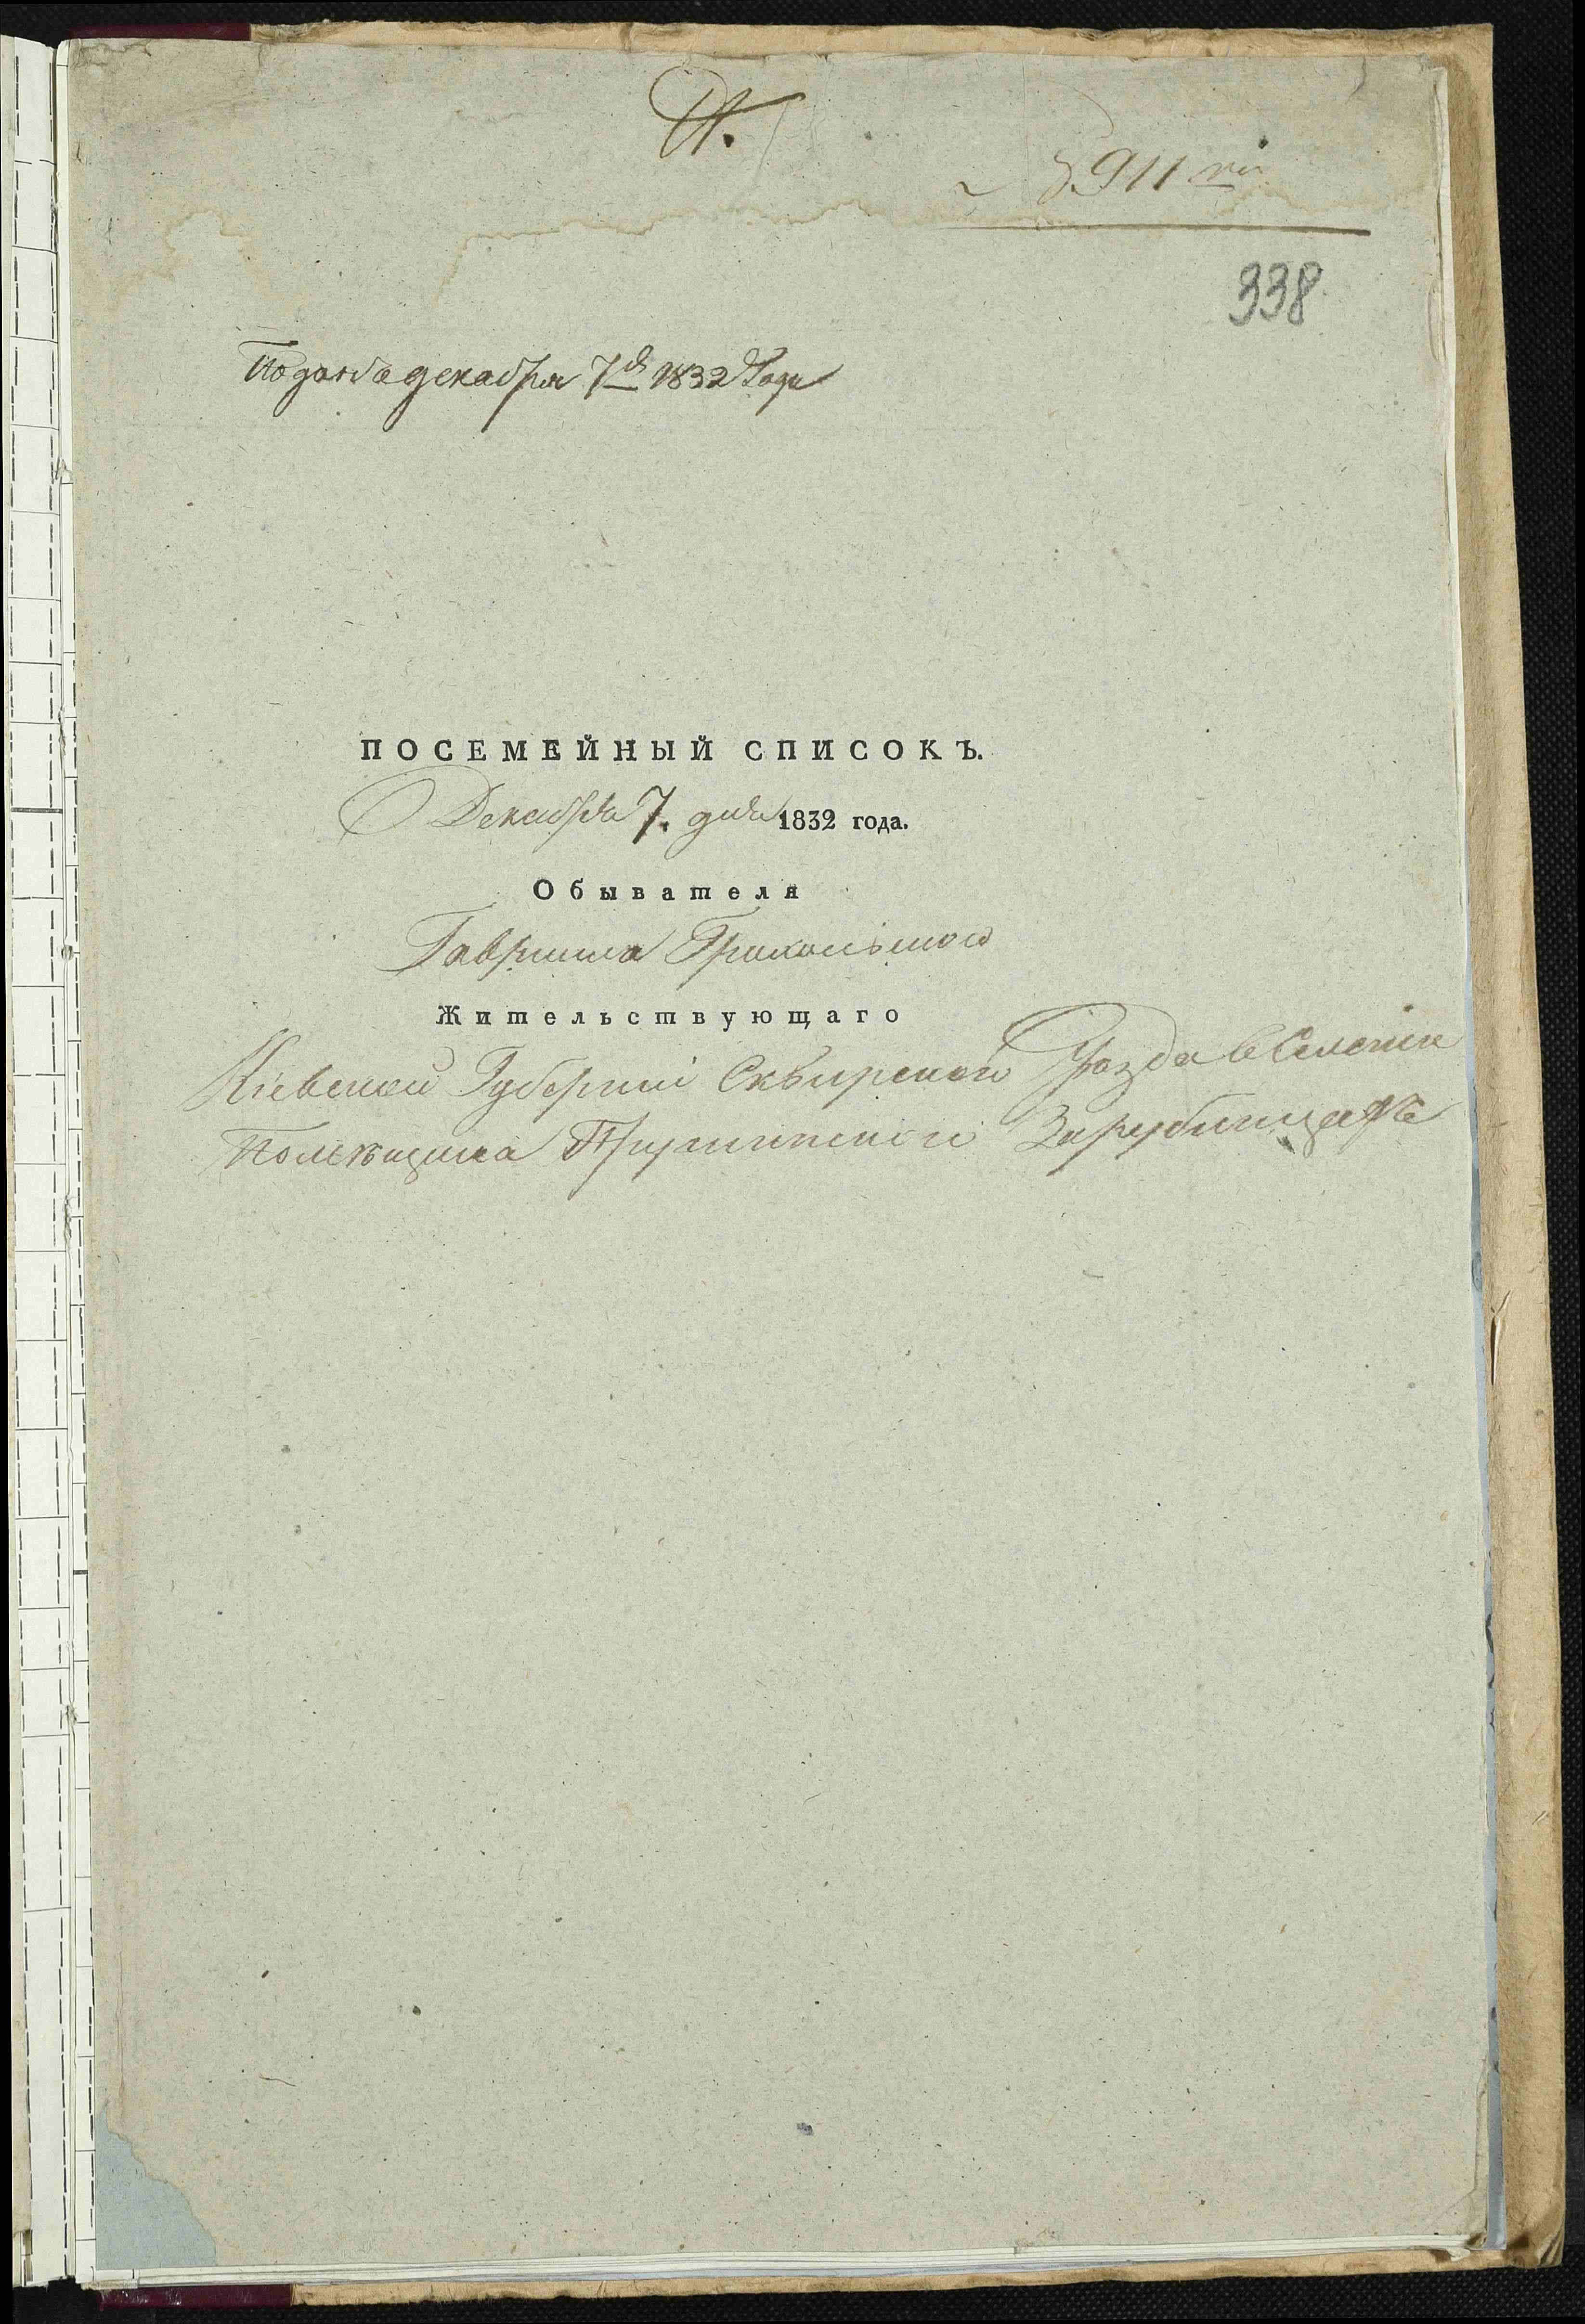 911
338
Подана декабря 7д 1832 Года
ПОСЕМЕЙНЫЙ СПИСОКЪ.
Декабря 7. дня 1832 года.
Обывателя
Гавриила
Жительствующаго
Кіевской Губерніи Сквирской Уезда в Селеніи
Помѣщика Зарубинцахъ